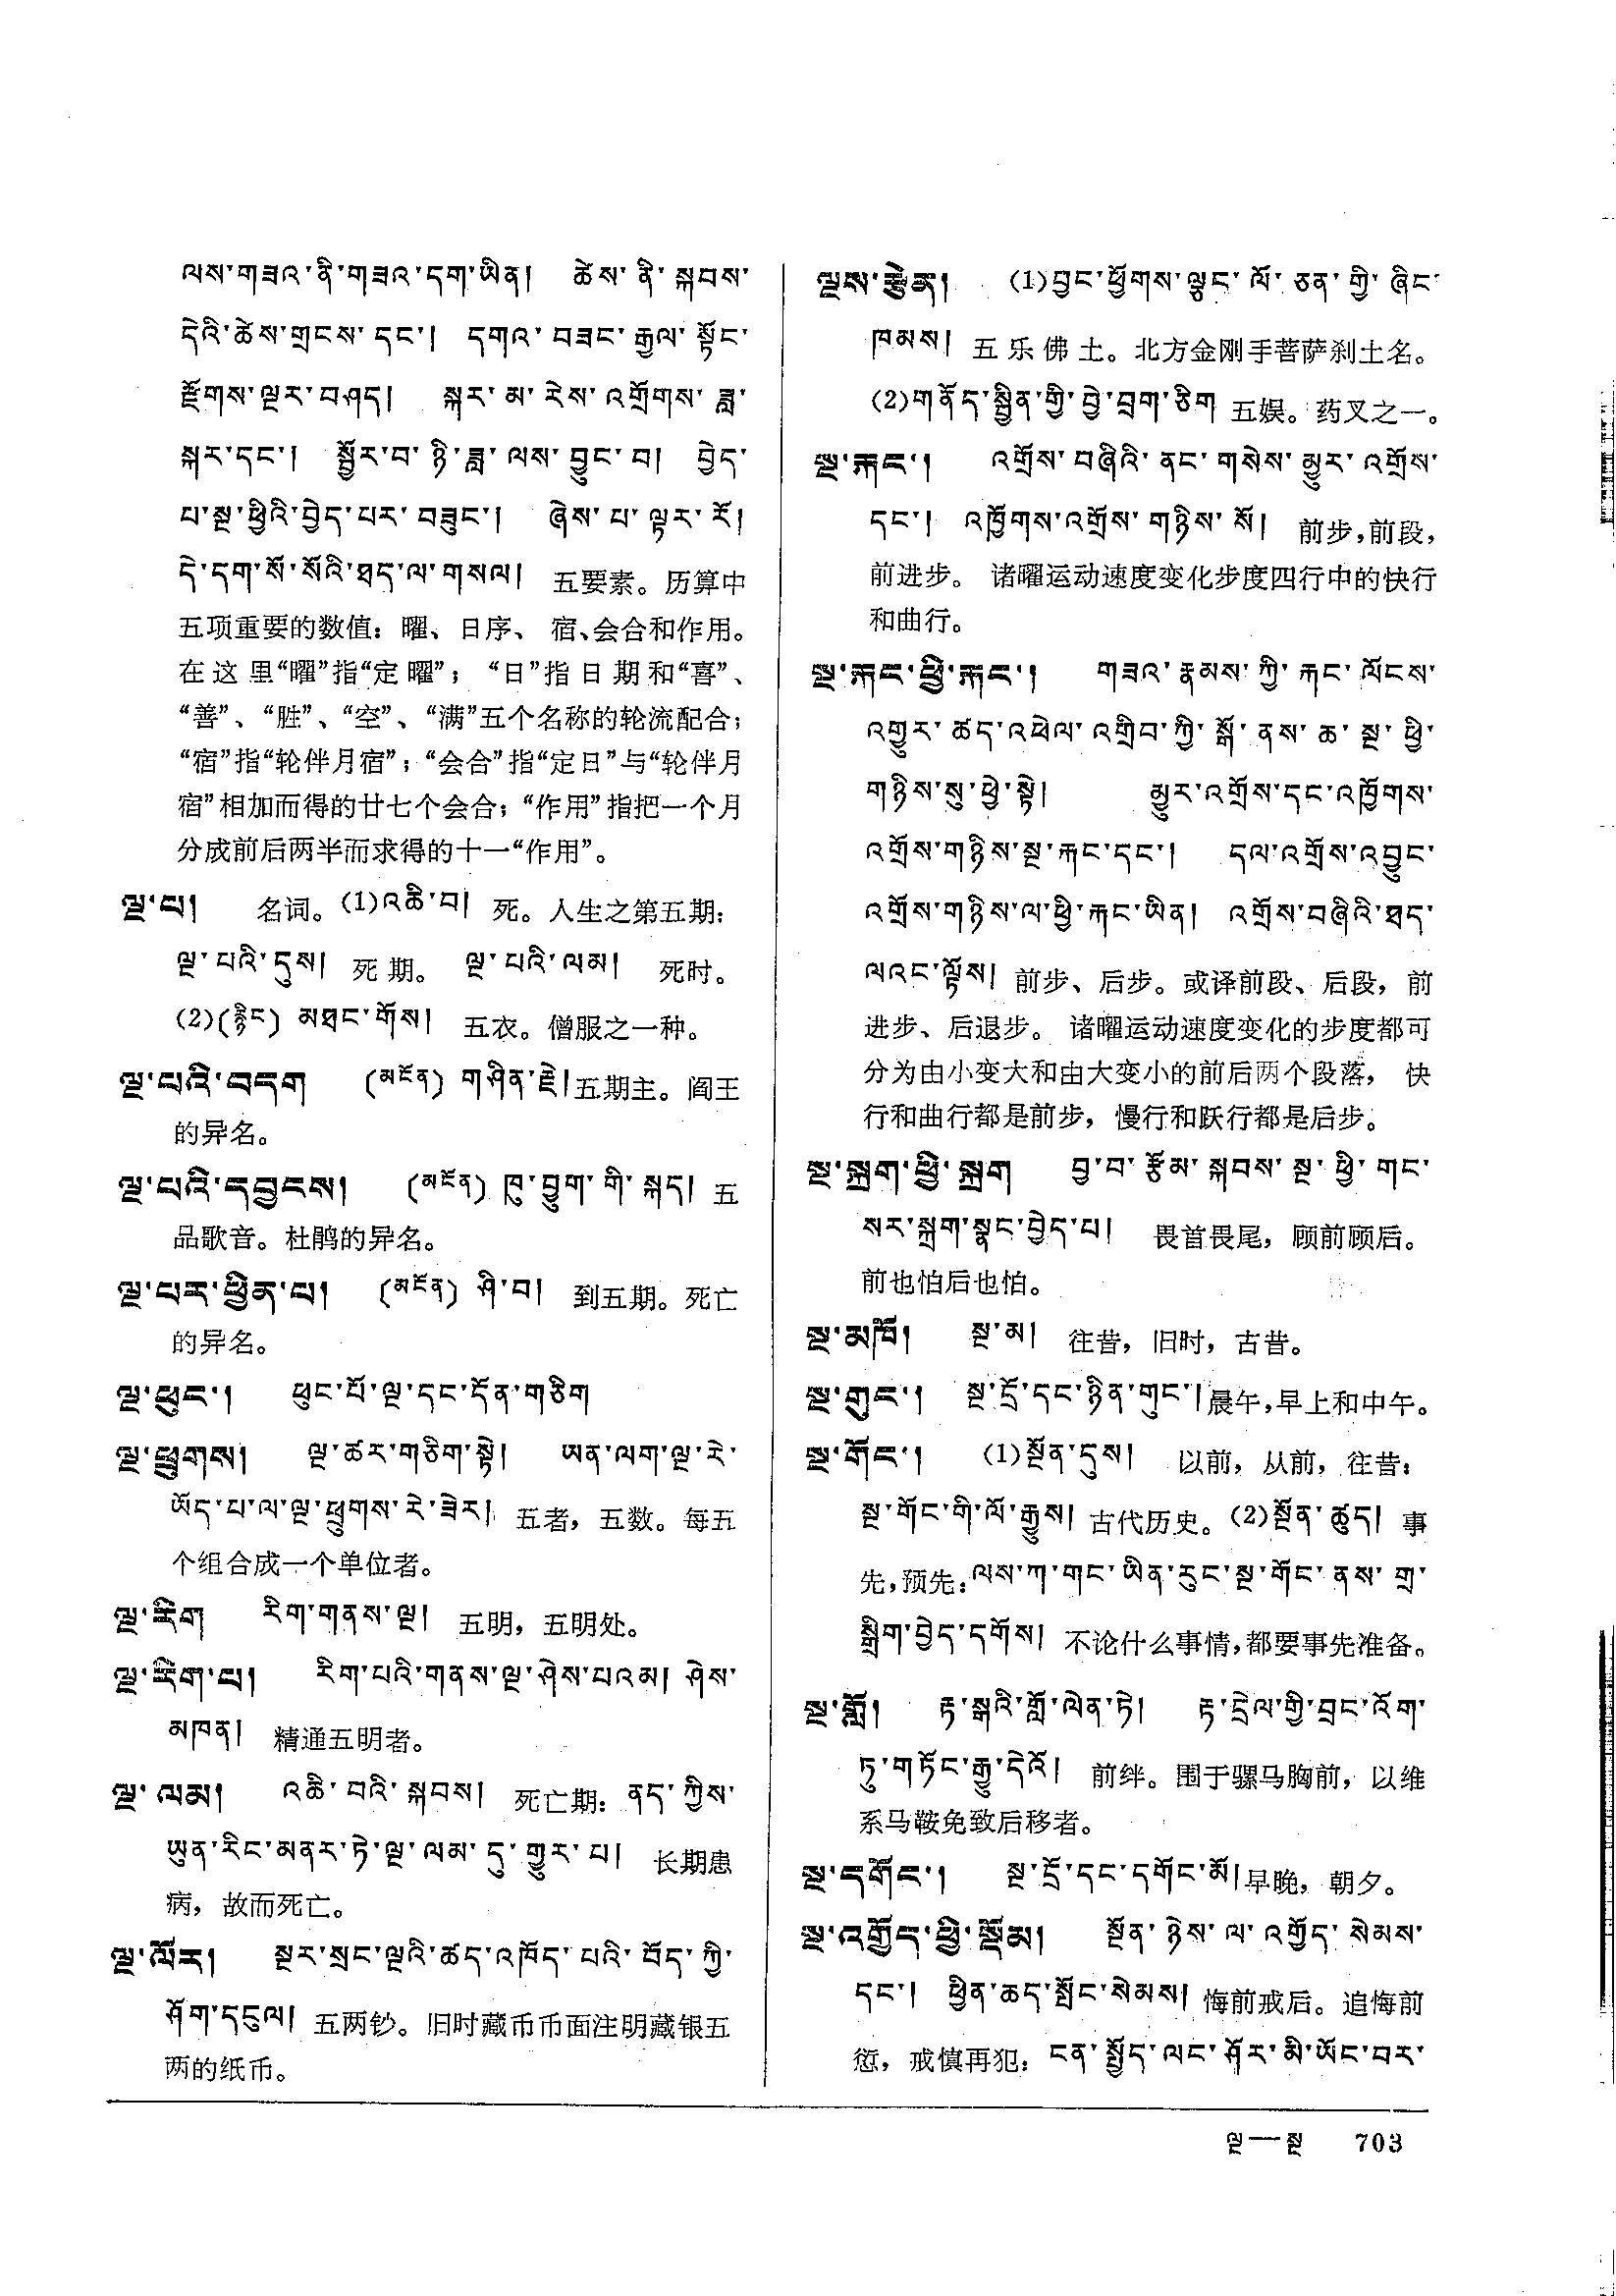 ལས་གཟའ་ནི་གཟའ་དག་ཡིན། ཚེས་ནི་སྐབས་
དེའི་ཚེས་གྲངས་དང་། དགའ་བཟང་རྒྱལ་སྟོང་
རྫོགས་ལྔར་བཤད། སྐར་མ་རེས་འགྲོགས་ཟླ་
སྐར་དང་། སྦྱོར་བ་ཉི་ཟླ་ལས་བྱུང་བ། བྱེད་
པ་སྔ་ཕྱིའི་བྱེད་པར་བཟུང་། ཞེས་པ་ལྟར་རོ།
དེ་དག་སོ་སོའི་ཐད་ལ་གསལ། 五要素。历算中
五项重要的数值：曜、日序、宿、会合和作用。
在这里“曜”指“定曜”；“日”指日期和“喜”、
“善”、“胜”、“空”、“满”五个名称的轮流配合；
“宿”指“轮伴月宿”；“会合”指“定日”与“轮伴月
宿”相加而得的廿七个会合；“作用”指把一个月
分成前后两半而求得的十一“作用”。
ལྔ་པ། 名词。(1)འཆི་བ། 死。人生之第五期：
ལྔ་པའི་དུས། 死期。 ལྔ་པའི་ལམ། 死时。
(2)(རྙིང) མཐང་གོས། 五衣。僧服之一种。
ལྔ་པའི་བདག (མངོན) གཤིན་རྗེ། 五期主。阎王
的异名。
ལྔ་པའི་དབྱངས། (མངོན) ཁུ་བྱུག་གི་སྐད། 五
品歌音。杜鹃的异名。
ལྔ་པར་ཕྱིན་པ། (མངོན) ཤི་བ། 到五期。死亡
的异名。
ལྔ་ཕུང་། ཕུང་པོ་ལྔ་དང་དོན་གཅིག
ལྔ་ཕྲུགས། ལྔ་ཚར་གཅིག་སྟེ། ཡན་ལག་ལྔ་རེ་
ཡོད་པ་ལ་ལྔ་ཕྲུགས་རེ་ཟེར། 五者，五数。每五
个组合成一个单位者。
ལྔ་རིག རིག་གནས་ལྔ། 五明，五明处。
ལྔ་རིག་པ། རིག་པའི་གནས་ལྔ་ཤེས་པའམ། ཤེས་
མཁན། 精通五明者。
ལྔ་ལམ། འཆི་བའི་སྐབས། 死亡期：ནད་ཀྱིས་
ཡུན་རིང་མནར་ཏེ་ལྔ་ལམ་དུ་གྱུར་པ། 长期患
病，故而死亡。
ལྔ་ལོར། སྔར་སྲང་ལྔའི་ཚད་འཁོད་པའི་བོད་ཀྱི་
ཤོག་དངུལ། 五两钞。旧时藏币币面注明藏银五
两的纸币。
ལྔས་རྩེན། (1)བྱང་ཕྱོགས་ལྕང་ལོ་ཅན་གྱི་ཞིང་
ཁམས། 五乐佛土。北方金刚手菩萨刹土名。
(2)གནོད་སྦྱིན་གྱི་བྱེ་བྲག་ཅིག 五娱。药叉之一。
སྔ་རྐང་། འགྲོས་བཞིའི་ནང་གསེས་མྱུར་འགྲོས་
དང་། འཁྱོགས་འགྲོས་གཉིས་སོ། 前步，前段，
前进步。诸曜运动速度变化步度四行中的快行
和曲行。
སྔ་རྐང་ཕྱི་རྐང་། གཟའ་རྣམས་ཀྱི་རྐང་ལོངས་
འགྱུར་ཚད་འཕེལ་འགྲིབ་ཀྱི་སྒོ་ནས་ཆ་སྔ་ཕྱི་
གཉིས་སུ་ཕྱེ་སྟེ། མྱུར་འགྲོས་དང་འཁྱོགས་
འགྲོས་གཉིས་སྔ་རྐང་དང་། དལ་འགྲོས་འབྱུང་
འགྲོས་གཉིས་ལ་ཕྱི་རྐང་ཡིན། འགྲོས་བཞིའི་ཐད་
ལའང་ལྟོས། 前步、后步。或译前段、后段，前
进步、后退步。诸曜运动速度变化的步度都可
分为由小变大和由大变小的前后两个段落，快
行和曲行都是前步，慢行和跃行都是后步。
སྔ་སྐྲག་ཕྱི་སྐྲག བྱ་བ་རྩོམ་སྐབས་སྔ་ཕྱི་གང་
སར་སྐྲག་སྣང་བྱེད་པ། 畏首畏尾，顾前顾后。
前也怕后也怕。
སྔ་མཁོ། སྔ་མ། 往昔，旧时，古昔。
སྔ་གུང་། སྔ་དྲོ་དང་ཉིན་གུང་། 晨午，早上和中午。
སྔ་གོང་། (1)སྔོན་དུས། 以前，从前，往昔：
སྔ་གོང་གི་ལོ་རྒྱུས། 古代历史。(2)སྔོན་ཚུད། 事
先，预先：ལས་ཀ་གང་ཡིན་རུང་སྔ་གོང་ནས་གྲ་
སྒྲིག་བྱེད་དགོས། 不论什么事情，都要事先准备。
སྔ་གློ། རྟ་སྒའི་གློ་ལེན་ཏེ། རྟ་དྲེལ་གྱི་བྲང་འོག་
ཏུ་གཏོང་རྒྱུ་དེའོ། 前绊。围于骡马胸前，以维
系马鞍免致后移者。
སྔ་དགོང་། སྔ་དྲོ་དང་དགོང་མོ། 早晚，朝夕。
སྔ་འགྱོད་ཕྱི་སྡོམ། སྔོན་ཉེས་ལ་འགྱོད་སེམས་
དང་། ཕྱིན་ཆད་སྤོང་སེམས། 悔前戒后。追悔前
愆，戒慎再犯：ངན་སྤྱོད་ལང་ཤོར་མི་ཡོང་བར་
ལྔ—སྔ 703